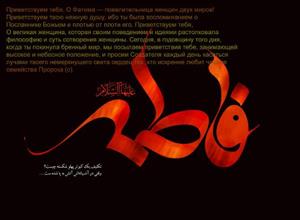 Приветствуем тебя, О Фатима — повелительница женщин двух миров!
Приветствуем твою нежную душу, ибо ты была воспоминанием о
Посланнике Божьем и плотью от плоти его. Приветствуем тебя,
О великая женщина, которая своим поведением и идеями растолковала
философию и суть сотворения женщины. Сегодня, в годовщину того дня,
когда ты покинула бренный мир, мы посылаем приветствия тебе, занимающей
высокое и небесное положение, и просим Создателя каждый день касаться
лучами твоего немеркнущего света сердец тех, кто искренне любит
семейства Пророка (с).
علیها السلام
فاطمه
تکلیف یک کبوتر پهلو شکسته چیست؟
وقتی در آشیانه‌اش آتش به پا شده‌ست...